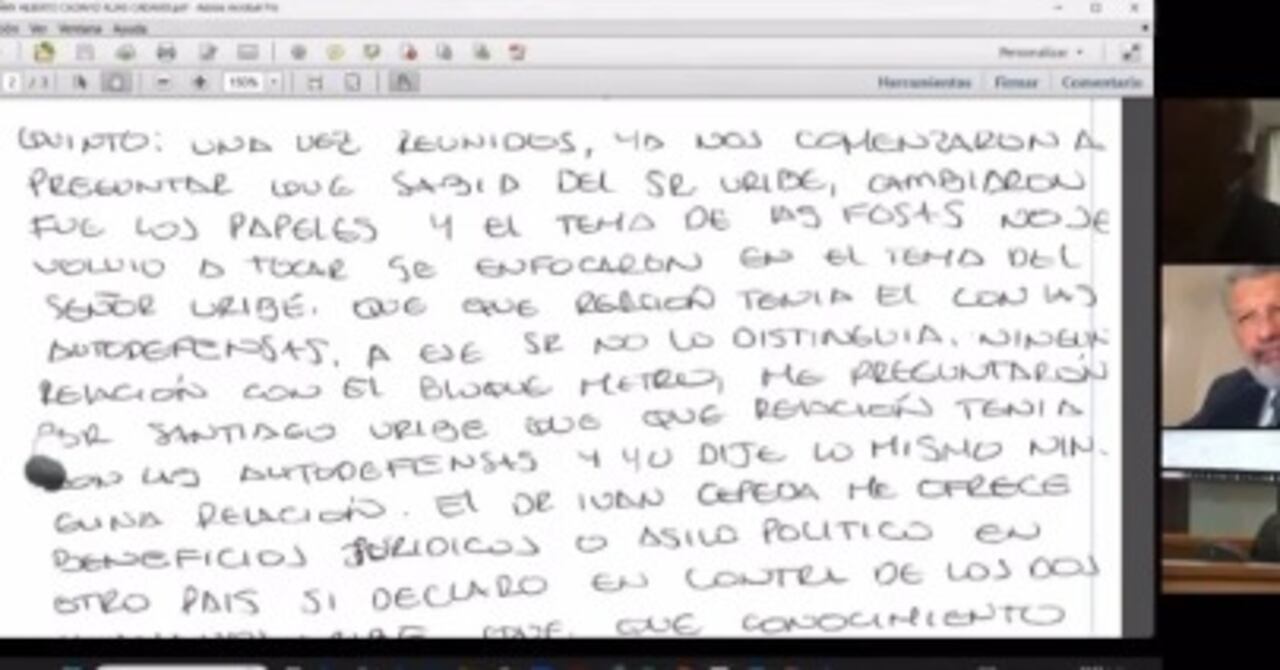 Ver Ventana Ayuda
Personalizar
2 / 3 150% Herramientas Firmar Comentario
QUINTO: UNA VEZ REUNIDOS, YA NOS COMENZARON A
PREGUNTAR QUE SABIA DEL SR URIBE, CAMBIARON
FUE LOS PAPELES Y EL TEMA DE LAS FOSAS NO SE
VOLVIO A TOCAR SE ENFOCARON EN EL TEMA DEL
SEÑOR URIBE. QUE QUE RELACION TENIA EL CON LAS
AUTODEFENSAS. A ESE SR NO LO DISTINGUIA. NINGUN
RELACIÓN CON EL BLOQUE METRO, ME PREGUNTARON
POR SANTIAGO URIBE QUE QUE RELACIÓN TENIA
CON LAS AUTODEFENSAS Y YO DIJE LO MISMO NIN.
GUNA RELACIÓN. EL DR IVAN CEPEDA ME OFRECE
BENEFICIOS JURIDICOS O ASILO POLITICO EN
OTRO PAIS SI DECLARO EN CONTRA DE LOS DOS
URIBE QUE QUE CONOCIMIENTO